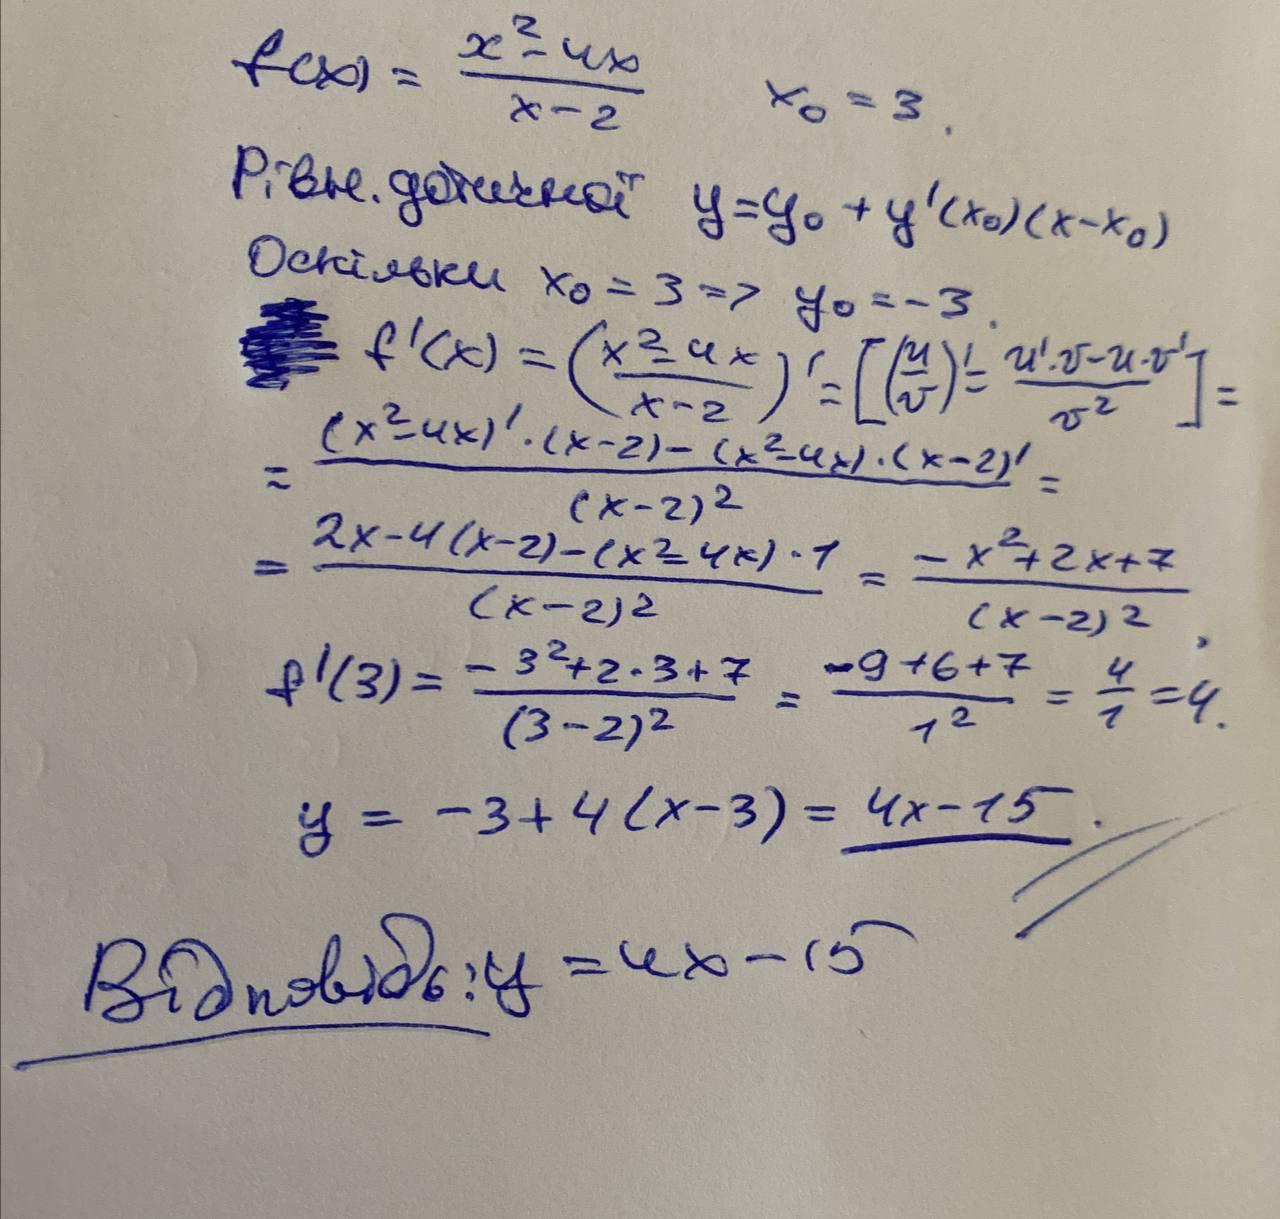 f(x) = (x² - 4x)/(x - 2)   x₀ = 3.
Рівн. дотичної y = y₀ + y'(x₀)(x - x₀)
Оскільки x₀ = 3 => y₀ = -3.
f'(x) = ((x² - 4x)/(x - 2))' = [(u/v)' = (u'·v - u·v')/v²] =
= ((x² - 4x)'·(x - 2) - (x² - 4x)·(x - 2)')/(x - 2)² =
= (2x - 4(x - 2) - (x² - 4x)·1)/(x - 2)² = (-x² + 2x + 7)/(x - 2)²,
f'(3) = (-3² + 2·3 + 7)/(3 - 2)² = (-9 + 6 + 7)/1² = 4/1 = 4.
y = -3 + 4(x - 3) = 4x - 15.
Відповідь: y = 4x - 15